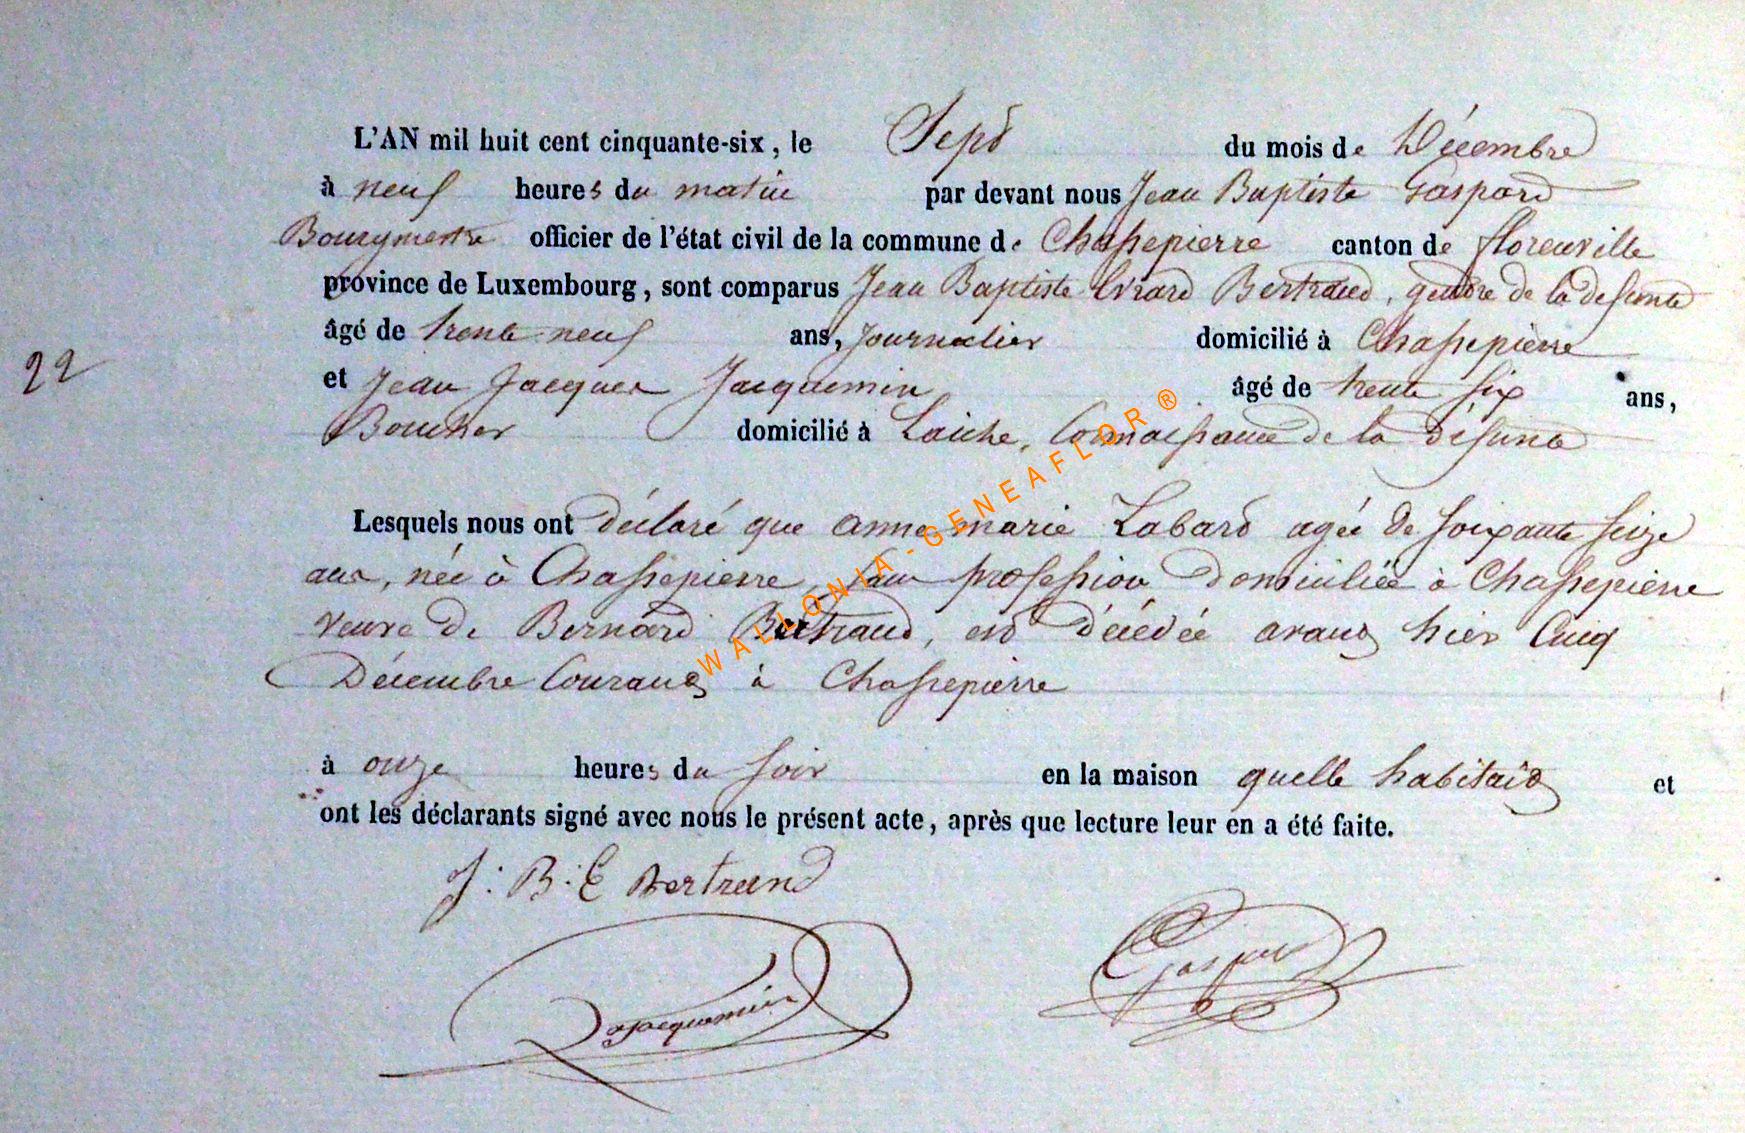 L'AN mil huit cent cinquante-six, le Sept du mois de Décembre
à neuf heures du matin par devant nous Jean Baptiste Gaspard
Bourgmestre officier de l'état civil de la commune de Chassepierre canton de florenville
province de Luxembourg, sont comparus Jean Baptiste Evrard Bertrand, gendre de la defunte
âgé de trente-neuf ans, journalier domicilié à Chassepierre
22
et Jean Jacques Jacquemin âgé de trente six ans,
Boucher domicilié à Laiche, Connaissance de la défunte
Lesquels nous ont déclaré que anne marie Labard agée de soixante seize
ans, née à Chassepierre, sans profession domiciliée à Chassepierre
veuve de Bernard Bertrand, est décédée avant hier Cinq
Décembre Courant à Chassepierre
à onze heures du soir en la maison quelle habitait et
ont les déclarants signé avec nous le présent acte, après que lecture leur en a été faite.
J: B: E Bertrand
Jacquemin
Gaspard
WALLONIA-GENEAFLOR®